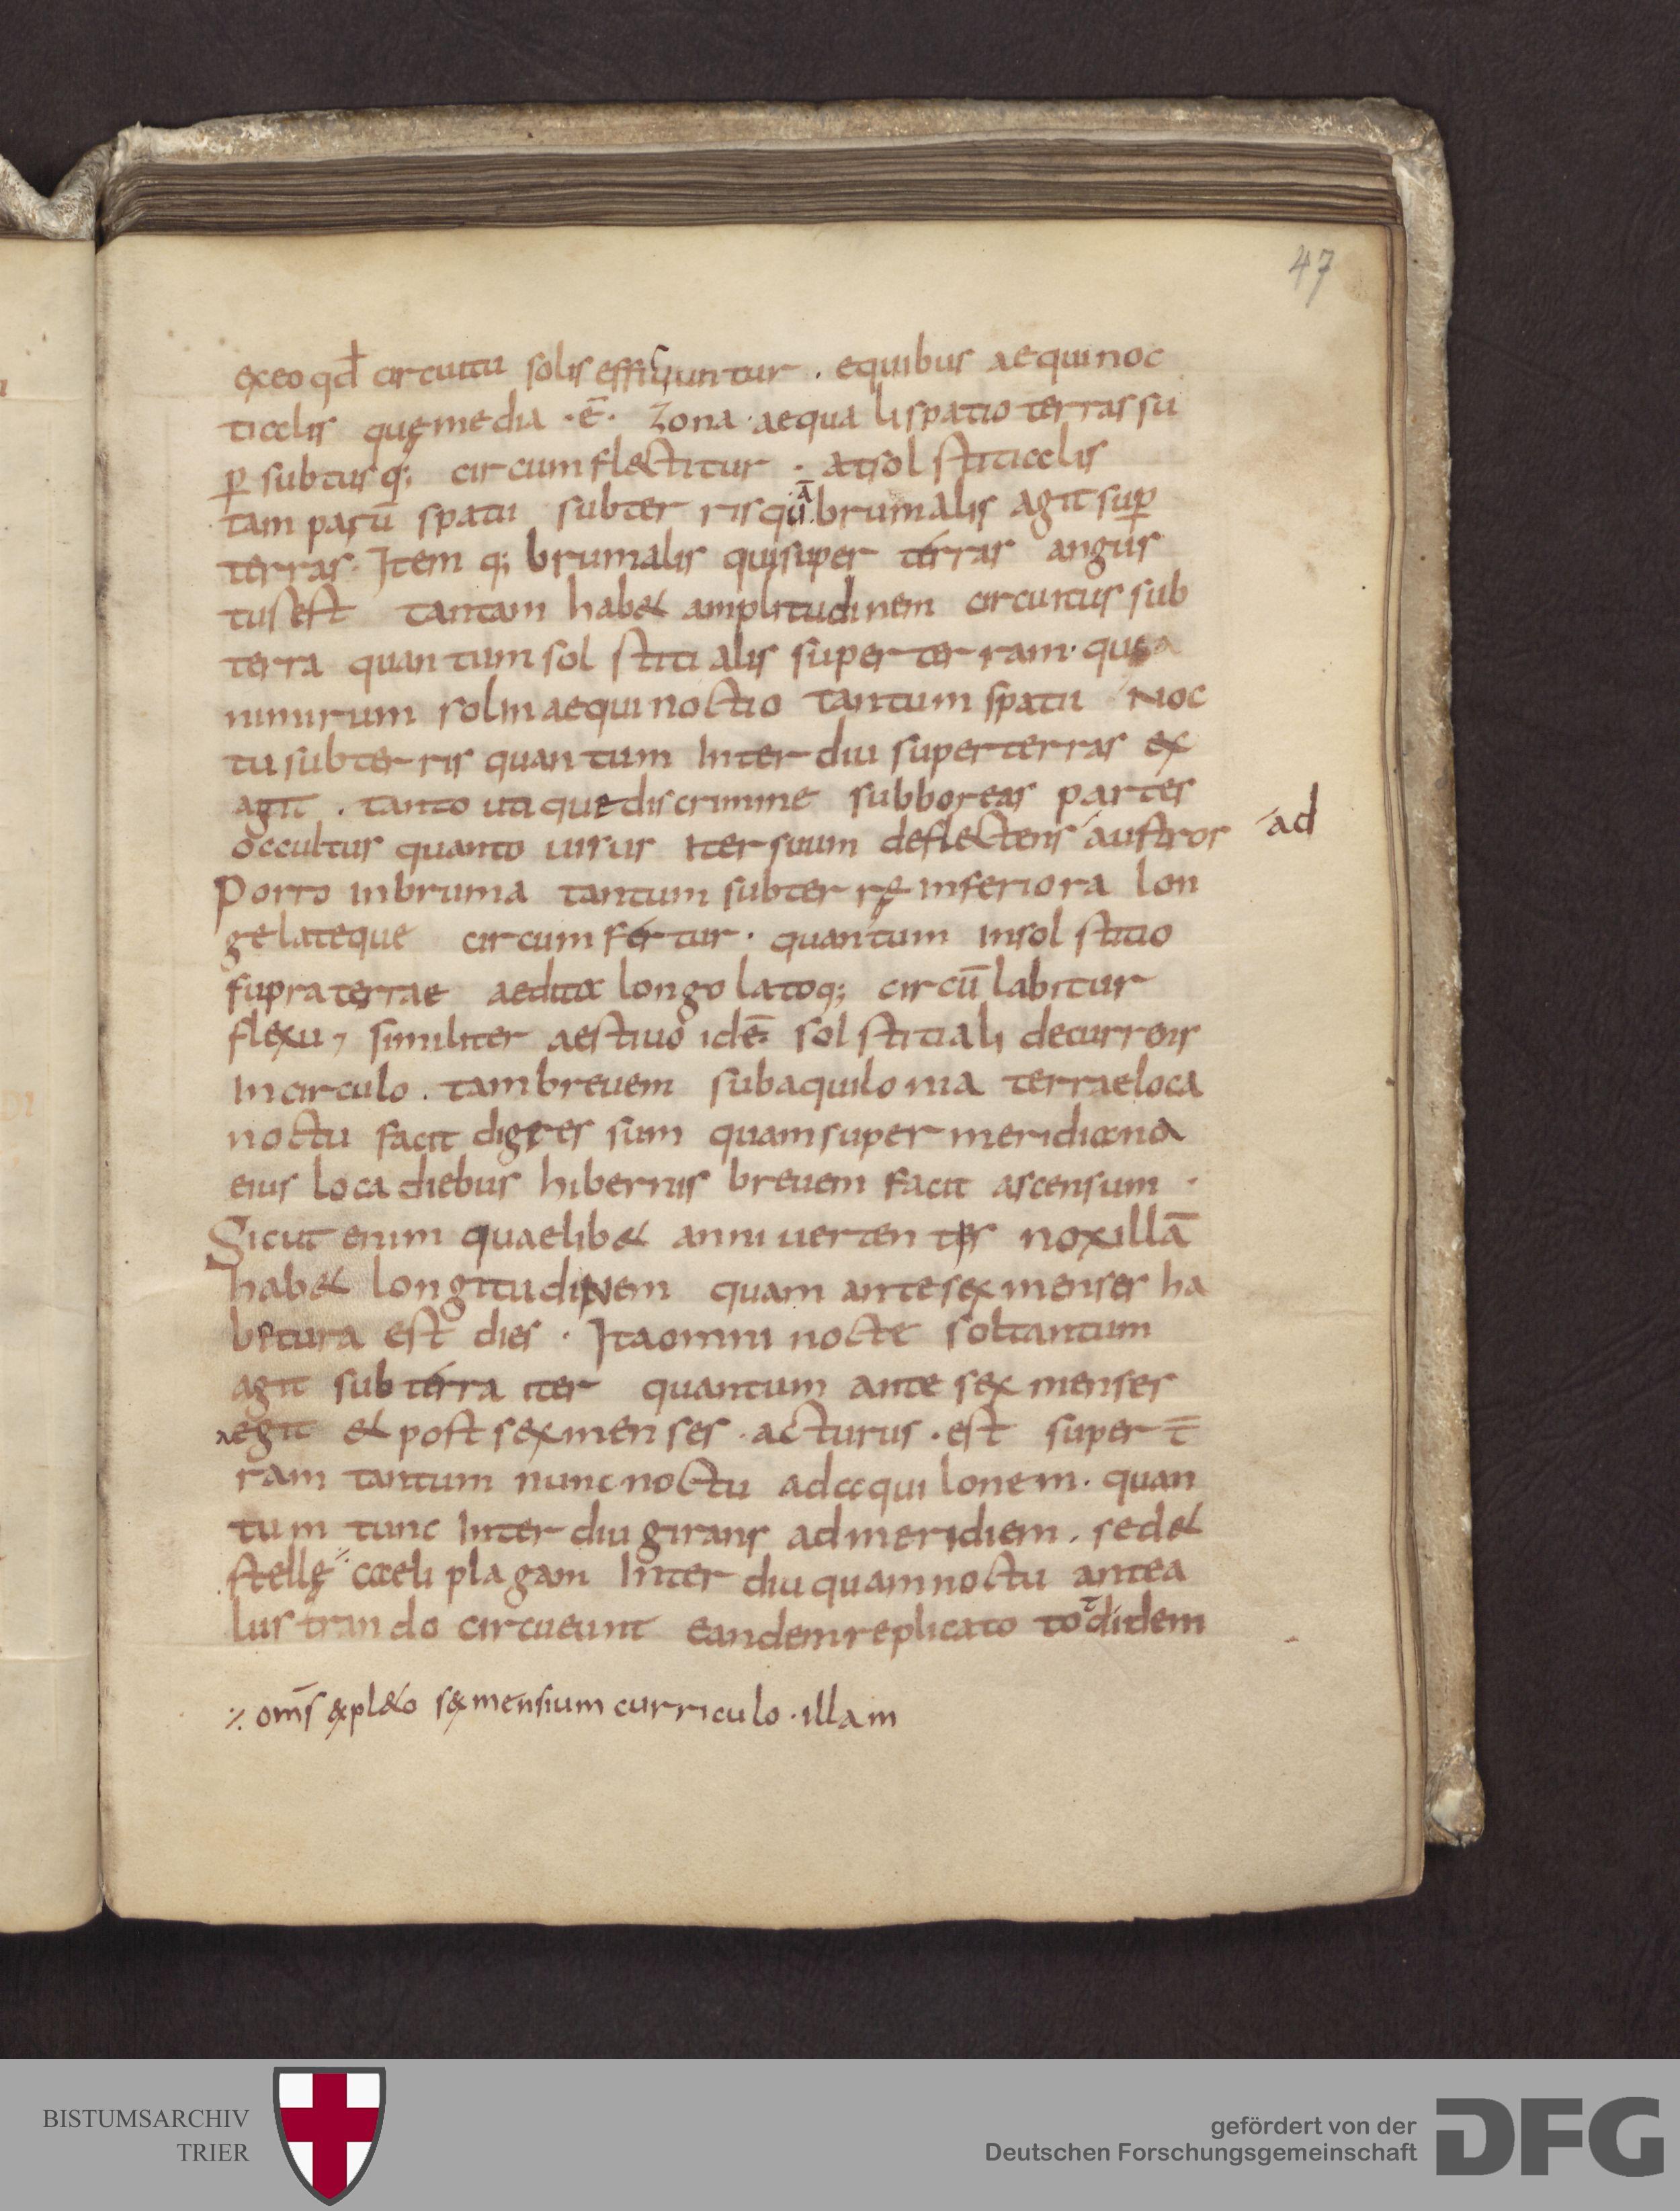 47
exeo qđ circuitu solis efficiuntur . e quibus aequinoc
tialis quę media · ē · zona · aequali spatio terras su
ꝑ subtusq; circumflectitur · at solstitialis
tam paru spatii subter ris quā brumalis agit suꝑ
terras . Item q; brumalis qui super terras angus
tus est tantam hab& amplitudinem circuitus sub
terra quantum solstitialis super terram · quia
nimirum sol in aequinoctio tantum spatii noc
tu subter ris quantum inter diu super terras ex
agit . tanto utique discrimine sub boreas partes
occultus quanto uisus iter suum deflectens austros
ad
Porro in bruma tantum subter rę inferiora lon
ge lateque circum fertur · quantum in solstitio
supra terrae aedita longo latoq; circū labitur
flexu, similiter aestiuo idē solstitiali decurrens
in circulo . tam breuem sub aquilonia terrae loca
noctu facit digressum quam super meridiana
eius loca diebus hibernis breuem facit ascensum ·
Sicut enim quaelib& anni uertentis nox illā
hab& longitudinem quam ante sex menses ha
bitura est dies · Ita omni nocte sol tantum
agit sub terra iter quantum ante sex menses
egit & post sex menses · acturus · est super t̄
ram tantum nunc noctu ad aquilonem · quan
tum tunc inter diu girans ad meridiem . sed &
stellę caeli plagam inter diu quam noctu antea
lustrando circueunt eandem replicato totdidem
om̄s expl&o sex mensium curriculo · illam
BISTUMSARCHIV
TRIER
gefördert von der
Deutschen Forschungsgemeinschaft
DFG